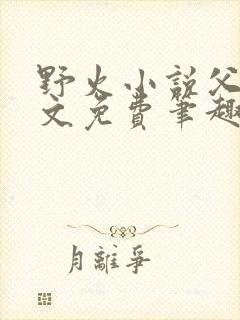 野火小说父
文免费笔趣
月离争